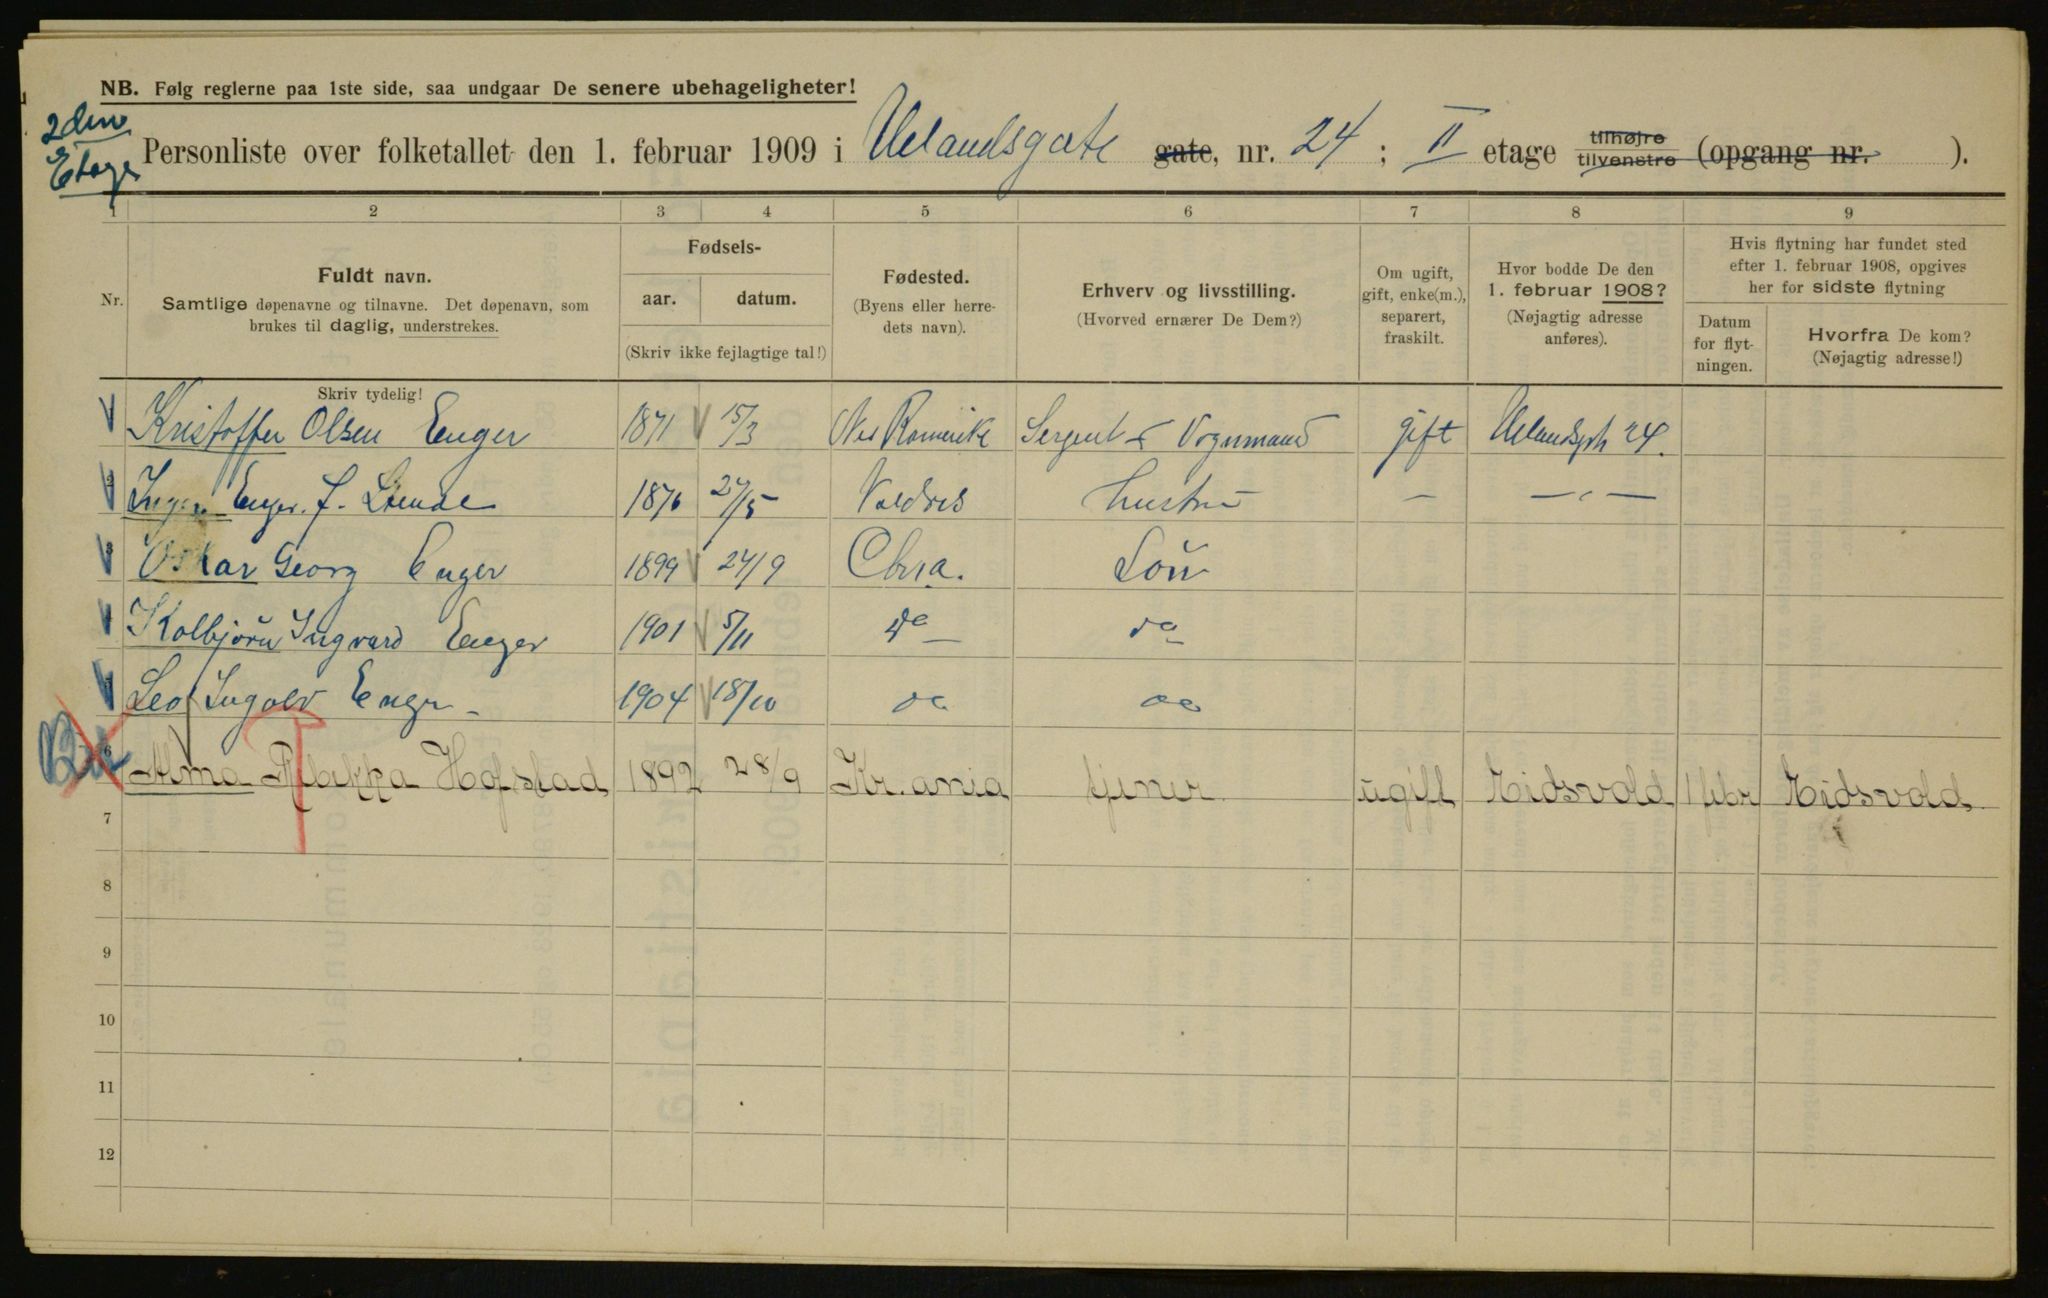 NB. Følg reglerne paa 1ste side, saa undgaar De senere ubehageligheter!
2den
Etage
Personliste over folketallet den 1. februar 1909 i Uelandsgate gate, nr. 24 ; II etage tilhøjre tilvenstre (opgang nr. ).
1 2 3 4 5 6 7 8 9
Nr.
Fuldt navn.
Samtlige døpenavne og tilnavne. Det døpenavn, som
brukes til daglig, understrekes.
Fødsels-
aar. datum.
(Skriv ikke fejlagtige tal!)
Fødested.
(Byens eller herre-
dets navn).
Erhverv og livsstilling.
(Hvorved ernærer De Dem?)
Om ugift,
gift, enke(m.),
separert,
fraskilt.
Hvor bodde De den
1. februar 1908?
(Nøjagtig adresse
anføres).
Hvis flytning har fundet sted
efter 1. februar 1908, opgives
her for sidste flytning
Datum
for flyt-
ningen.
Hvorfra De kom?
(Nøjagtig adresse!)
Skriv tydelig!
Kristoffer Olsen Enger 1871 15/3 Nes Romerike Sergent Vognmand gift Uelandsgt 24.
Enger f. 1876 27/5 Valdres hustru — —"—
Oskar Georg Enger 1899 24/9 Chria. Sön
Kolbjörn Ingvard Enger 1901 5/11 do do
Leof Ingolv Enger 1904 18/10 do do
6 Alma Rebekka Hofstad 1892 28/9 Kr.ania tjener ugift Eidsvold 1 febr Eidsvold
7
8
9
10
11
12